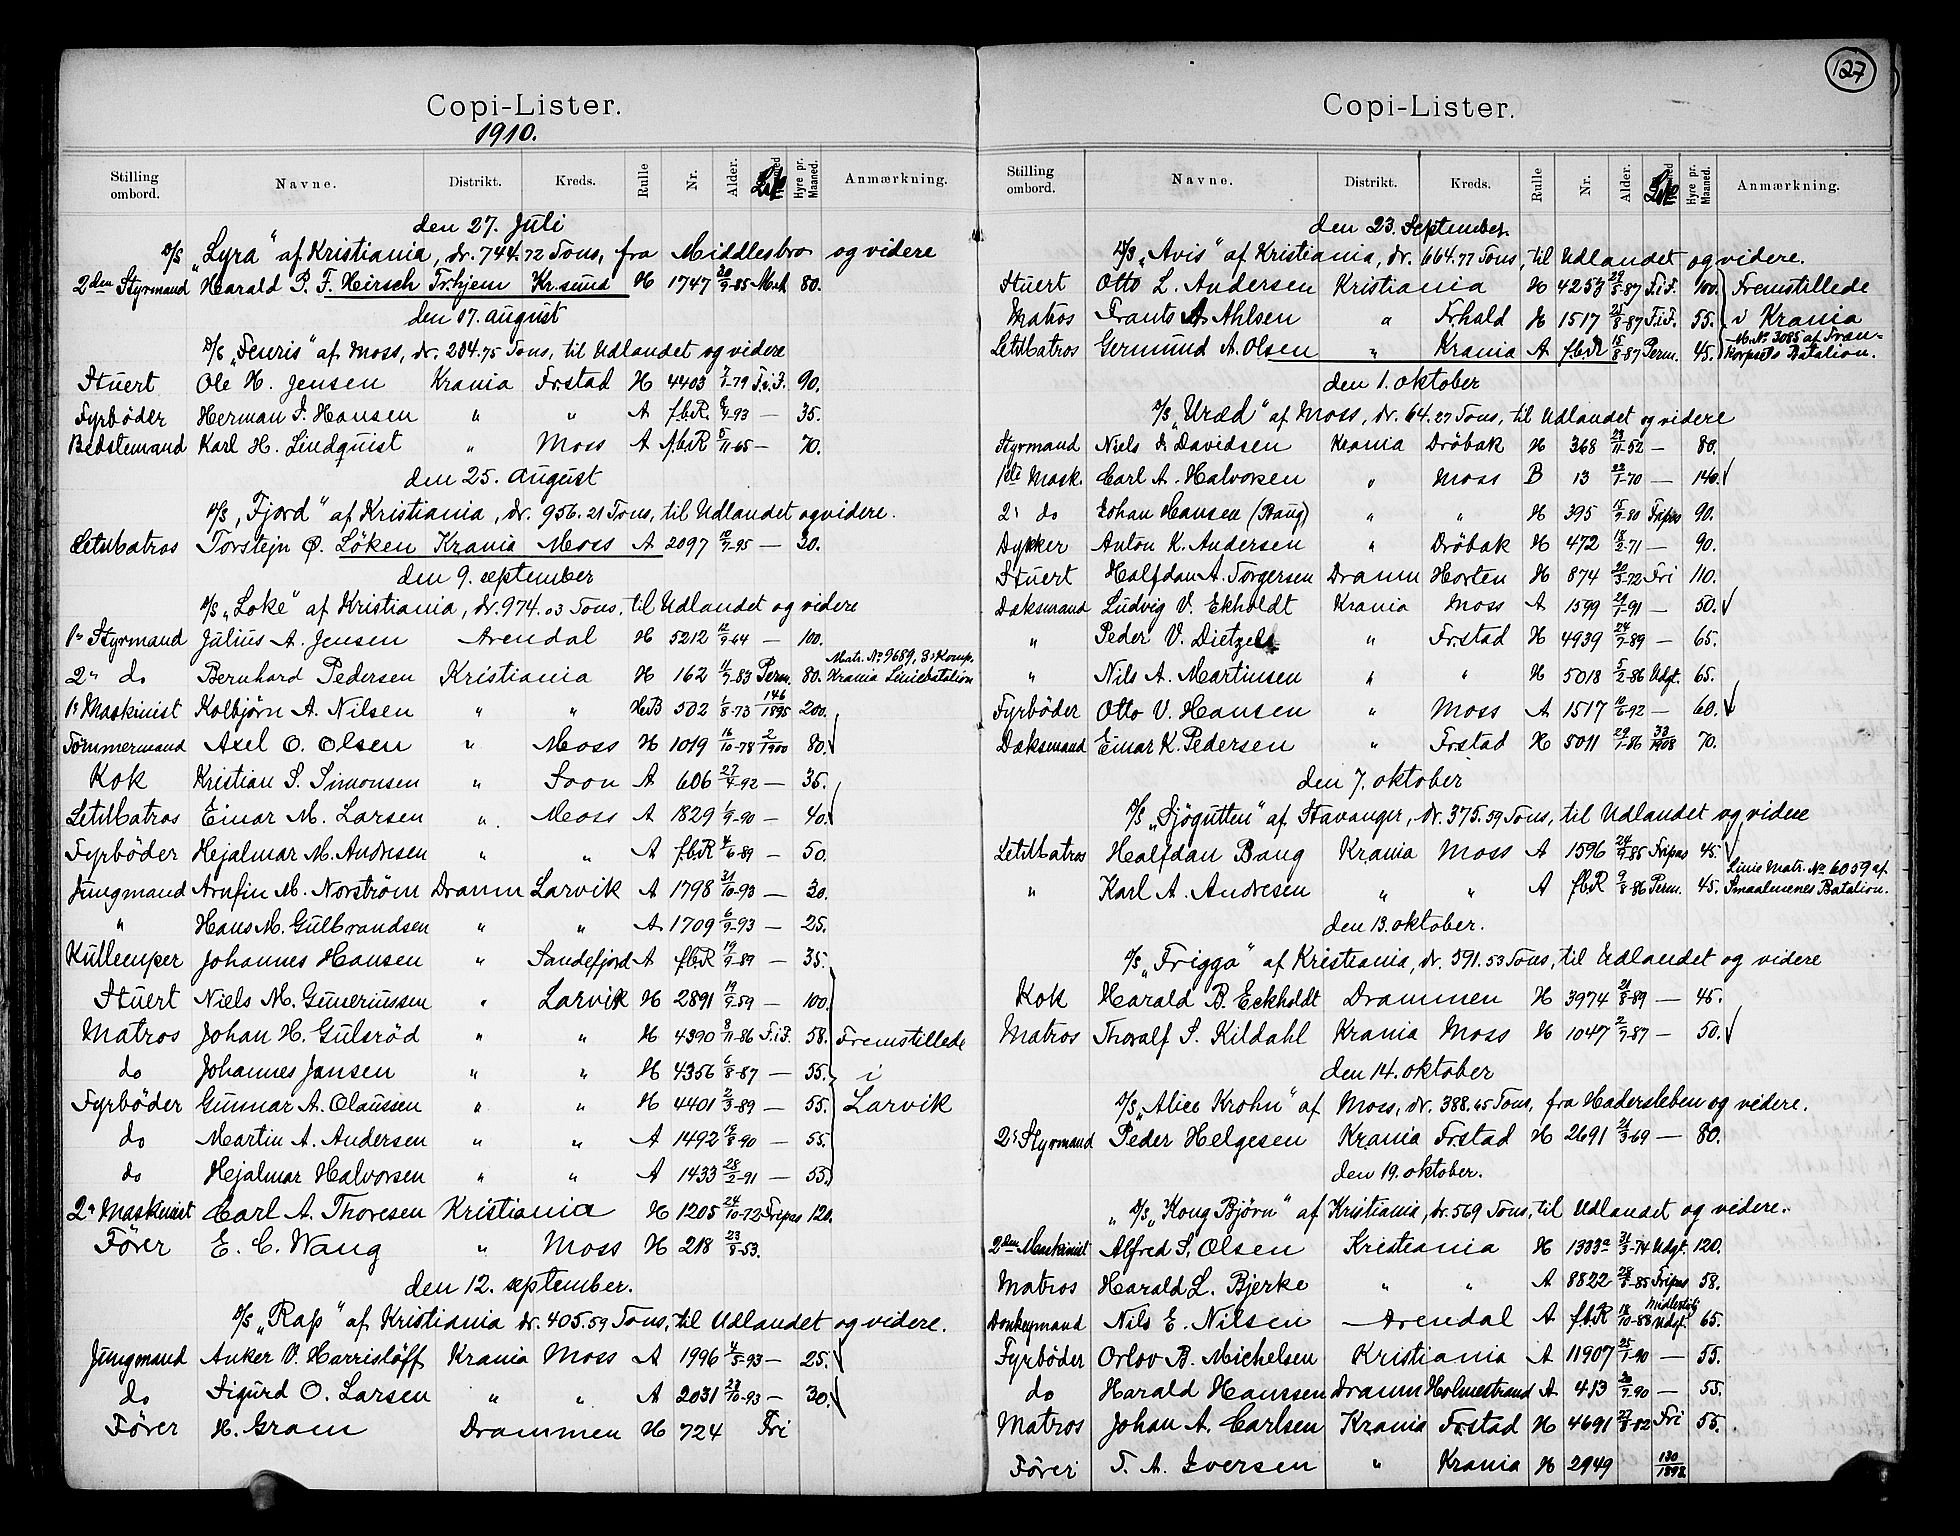 127
Copi-Lister.
1910.
Stilling ombord. Navne. Distrikt. Kreds. Rulle Nr. Alder. Hyre pr. Maaned. Anmærkning.
den 27. Juli
D/S „Lyra“ af Kristiania, dr. 744.72 Tons, fra Middlesbro og videre
2den Styrmand Harald P. F. Hirsch Tr.hjem Kr.sund H 1747 20/9-85 Mdt 80.
den 17. august
D/S „Fenris“ af Moss, dr. 204.75 Tons, til Udlandet og videre
Stuert Ole H. Jensen Krania Frstad H 4403 7/1-79 F.i.F. 90.
Fyrböder Herman J. Hansen " " A f.b.R. 8/9-93 — 35.
Bedstemand Karl H. Lindquist " Moss A f.b.R 5/11-65 — 70.
den 25. august
D/S „Fjord“ af Kristiania, dr. 956.21 Tons, til Udlandet og videre.
LetMatros Torstejn Ø. Löken Krania Moss A 2097 12/9-95 — 30.
den 9. september
D/S „Loke“ af Kristiania, dr. 974.03 Tons, til Udlandet og videre
1ª Styrmand Julius A. Jensen Arendal H 5212 12/9-64 — 100.
Matr. Nº 9689, 3ª Komp.
2ª do Bernhard Pedersen Kristiania H 162 11/7-83 Perm. 80. Krania Liniebatalion
1ª Maskinist Kolbjørn A. Nilsen " " HB 502 1/8-73 146/1895 200.
Tömmermand Axel O. Olsen " Moss H 1019 16/10-78 2/1900 80.
Kok Kristian S. Simonsen " Soon A 606 27/4-92 — 35.
LetMatros Einar M. Larsen " Moss A 1829 1/9-90 — 40.
Fyrböder Hejalmar M. Andresen " " A f.b.R 4/6-89 — 50.
Jungmand Arnfin M. Norström Dramm Larvik A 1798 31/10-93 — 30.
" Hans M. Gulbrandsen " " A 1709 6/9-93 — 25.
Kullemper Johannes Hansen " Sandefjord A f.b.R 19/9-89 — 35.
Stuert Niels M. Guneriussen " Larvik H 2891 19/9-59 — 100.
Matros Johan H. Gulsröd " " H 4390 8/11-86 F.i.F. 58. Fremstillede
do Johannes Jansen " " H 4356 6/8-87 — 55. i
Fyrböder Gunnar A. Olaussen " " H 4401 2/3-89 — 55. Larvik
do Martin A. Andersen " " A 1492 19/8-90 — 55.
do Hejalmar Halvorsen " " A 1433 28/2-91 — 55.
2ª Maskinist Carl A. Thoresen Kristiania H 1205 24/10-72 Fripas 120.
Förer E. C. Wang " Moss H 218 23/8-53.
den 12. september.
D/S „Rap“ af Kristiania dr. 405.59 Tons, til Udlandet og videre.
Jungmand Anker V. Harrislöff Krania Moss A 1996 4/5-93 — 25.
do Sigurd O. Larsen " " A 2031 23/10-93 — 30.
Förer H. Gram Drammen H 724 Fri
Copi-Lister.
Stilling ombord. Navne. Distrikt. Kreds. Rulle Nr. Alder. Hyre pr. Maaned. Anmærkning.
den 23. September
D/S „Avis“ af Kristiania, dr. 664.77 Tons, til Udlandet og videre.
Stuert Otto L. Andersen Kristiania H 4253 27/8-87 F.i.F. 100. Fremstillede
Matros Frants A. Ahlsen " Frhald H 1517 21/8-87 F.i.F. 55. i Krania
LetMatros Germund A. Olsen " Krania A f.b.R 15/8-87 Perm. 45. M. Nº 3085 af Tran-
korpsets Batalion.
den 1. oktober
D/S „Uræd“ af Moss, dr. 64.27 Tons, til Udlandet og videre
Styrmand Niels D. Davidsen Krania Dröbak H 368 23/11-52 — 80.
1ste Mask. Carl A. Halvorsen " Moss B 13 22/1-70 — 140.
2ª do Johan Hansen (Baug) " " H 395 15/9-80 Fripas 90.
Dykker Anton K. Andersen " Dröbak H 472 18/2-71 — 90.
Stuert Halfdan A. Torgersen Dramm Horten H 874 20/3-72 Fri 110.
Dæksmand Ludvig V. Ekholdt Krania Moss A 1599 29/1-91 — 50.
" Peder V. Dietzel " Frstad H 4939 24/9-89 — 65.
" Nils A. Martinsen " " H 5018 5/2-86 Udgt. 65.
Fyrböder Otto V. Hansen " Moss A 1517 10/6-92 — 60.
Dæksmand Einar K. Pedersen " Frstad H 5011 29/1-86 32/1908 70.
den 7. oktober
D/S „Sjögutten“ af Stavanger, dr. 375.59 Tons, til Udlandet og videre
LetMatros Halfdan Bang Krania Moss A 1596 24/9-85 Fripas 45.
Linie Matr. Nº 6059 af
" Karl A. Andresen " " A f.b.R 9/8-86 Perm. 45. Smaalenenes Batalion.
den 13. oktober.
D/S „Frigga“ af Kristiania, dr. 591.53 Tons, til Udlandet og videre
Kok Harald B. Eckholdt Drammen H 3974 21/8-89 — 45.
Matros Thoralf S. Kildahl Krania Moss H 1047 2/7-87 — 50.
den 14. oktober
D/S „Alice Krohn“ af Moss, dr. 388.65 Tons, fra Hadersleben og videre.
2ª Styrmand Peder Helgesen Krania Frstad H 2691 21/3-69 — 80.
den 19. oktober.
" D/S „Kong Bjørn“ af Kristiania, dr. 569 Tons, til Udlandet og videre.
2den Maskinist Alfred S. Olsen Kristiania H 1333ª 31/3-74 Udgt. 120.
Matros Harald L. Bjerke " " A 8822 28/8-85 Fripas 58.
Donkeymand Nils E. Nilsen Arendal A f.b.R 18/10-88 Midlertid. Udgt. 65.
Fyrböder Orlov B. Michelsen Kristiania A 11907 25/1-90 — 55.
do Harald Hanssen Dramm Holmestrand A 413 20/9-90 — 55.
Matros Johan A. Carlsen Krania Frstad H 4691 27/8-82 Fri 55.
Förer T. A. Iversen " Krania H 2949 130/1898